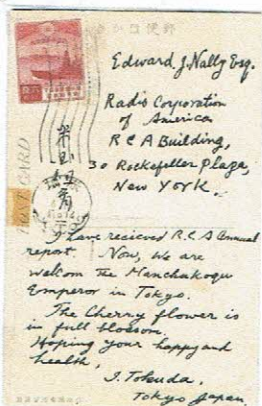 Edward J. Nally Esq.
Radio Corporation
of America
R C A Building,
30 Rockefeller Plaza,
New York.
POST CARD
I have recieved R.C.A Annual
report. Now, we are
welcom the Manchukogu
Emperor in Tokyo.
The Cherry flower is
in full blossom.
Hoping your happy and
health,
I. Tokuda.
Tokyo Japan.